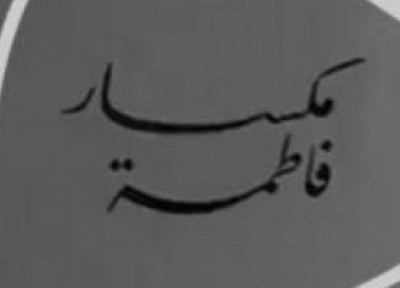 مكسار
فاطمة